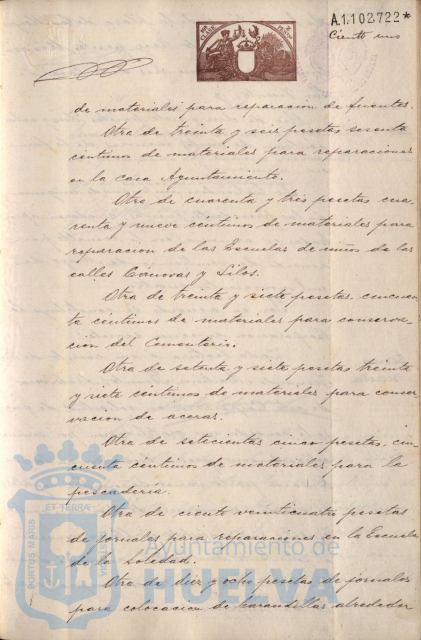 A.1.102.722*
Ciento uno
de materiales para reparacion de fuentes.
Otra de treinta y seis pesetas sesenta
centimos de materiales para reparaciones
en la casa Ayuntamiento.
Otra de cuarenta y tres pesetas cua-
renta y nueve céntimos de materiales para
reparacion de las Escuelas de niños de las
calles Canovas y Silos.
Otra de treinta y siete pesetas, cincuen-
ta céntimos de materiales para conserva-
cion del Cementerio.
Otra de setenta y siete pesetas treinta
y siete céntimos de materiales para conser
vacion de aceras.
Otra de setecientas cinco pesetas, cin-
cuenta céntimos de materiales para la
pescaderia.
Otra de ciento veinticuatro pesetas
de jornales para reparaciones en la Escuela
de la Soledad.
Otra de diez y ocho pesetas de jornales
para colocacion de barandillas alrededor
PORTUS MARIS
ET TERRÆ
Ayuntamiento de
HUELVA